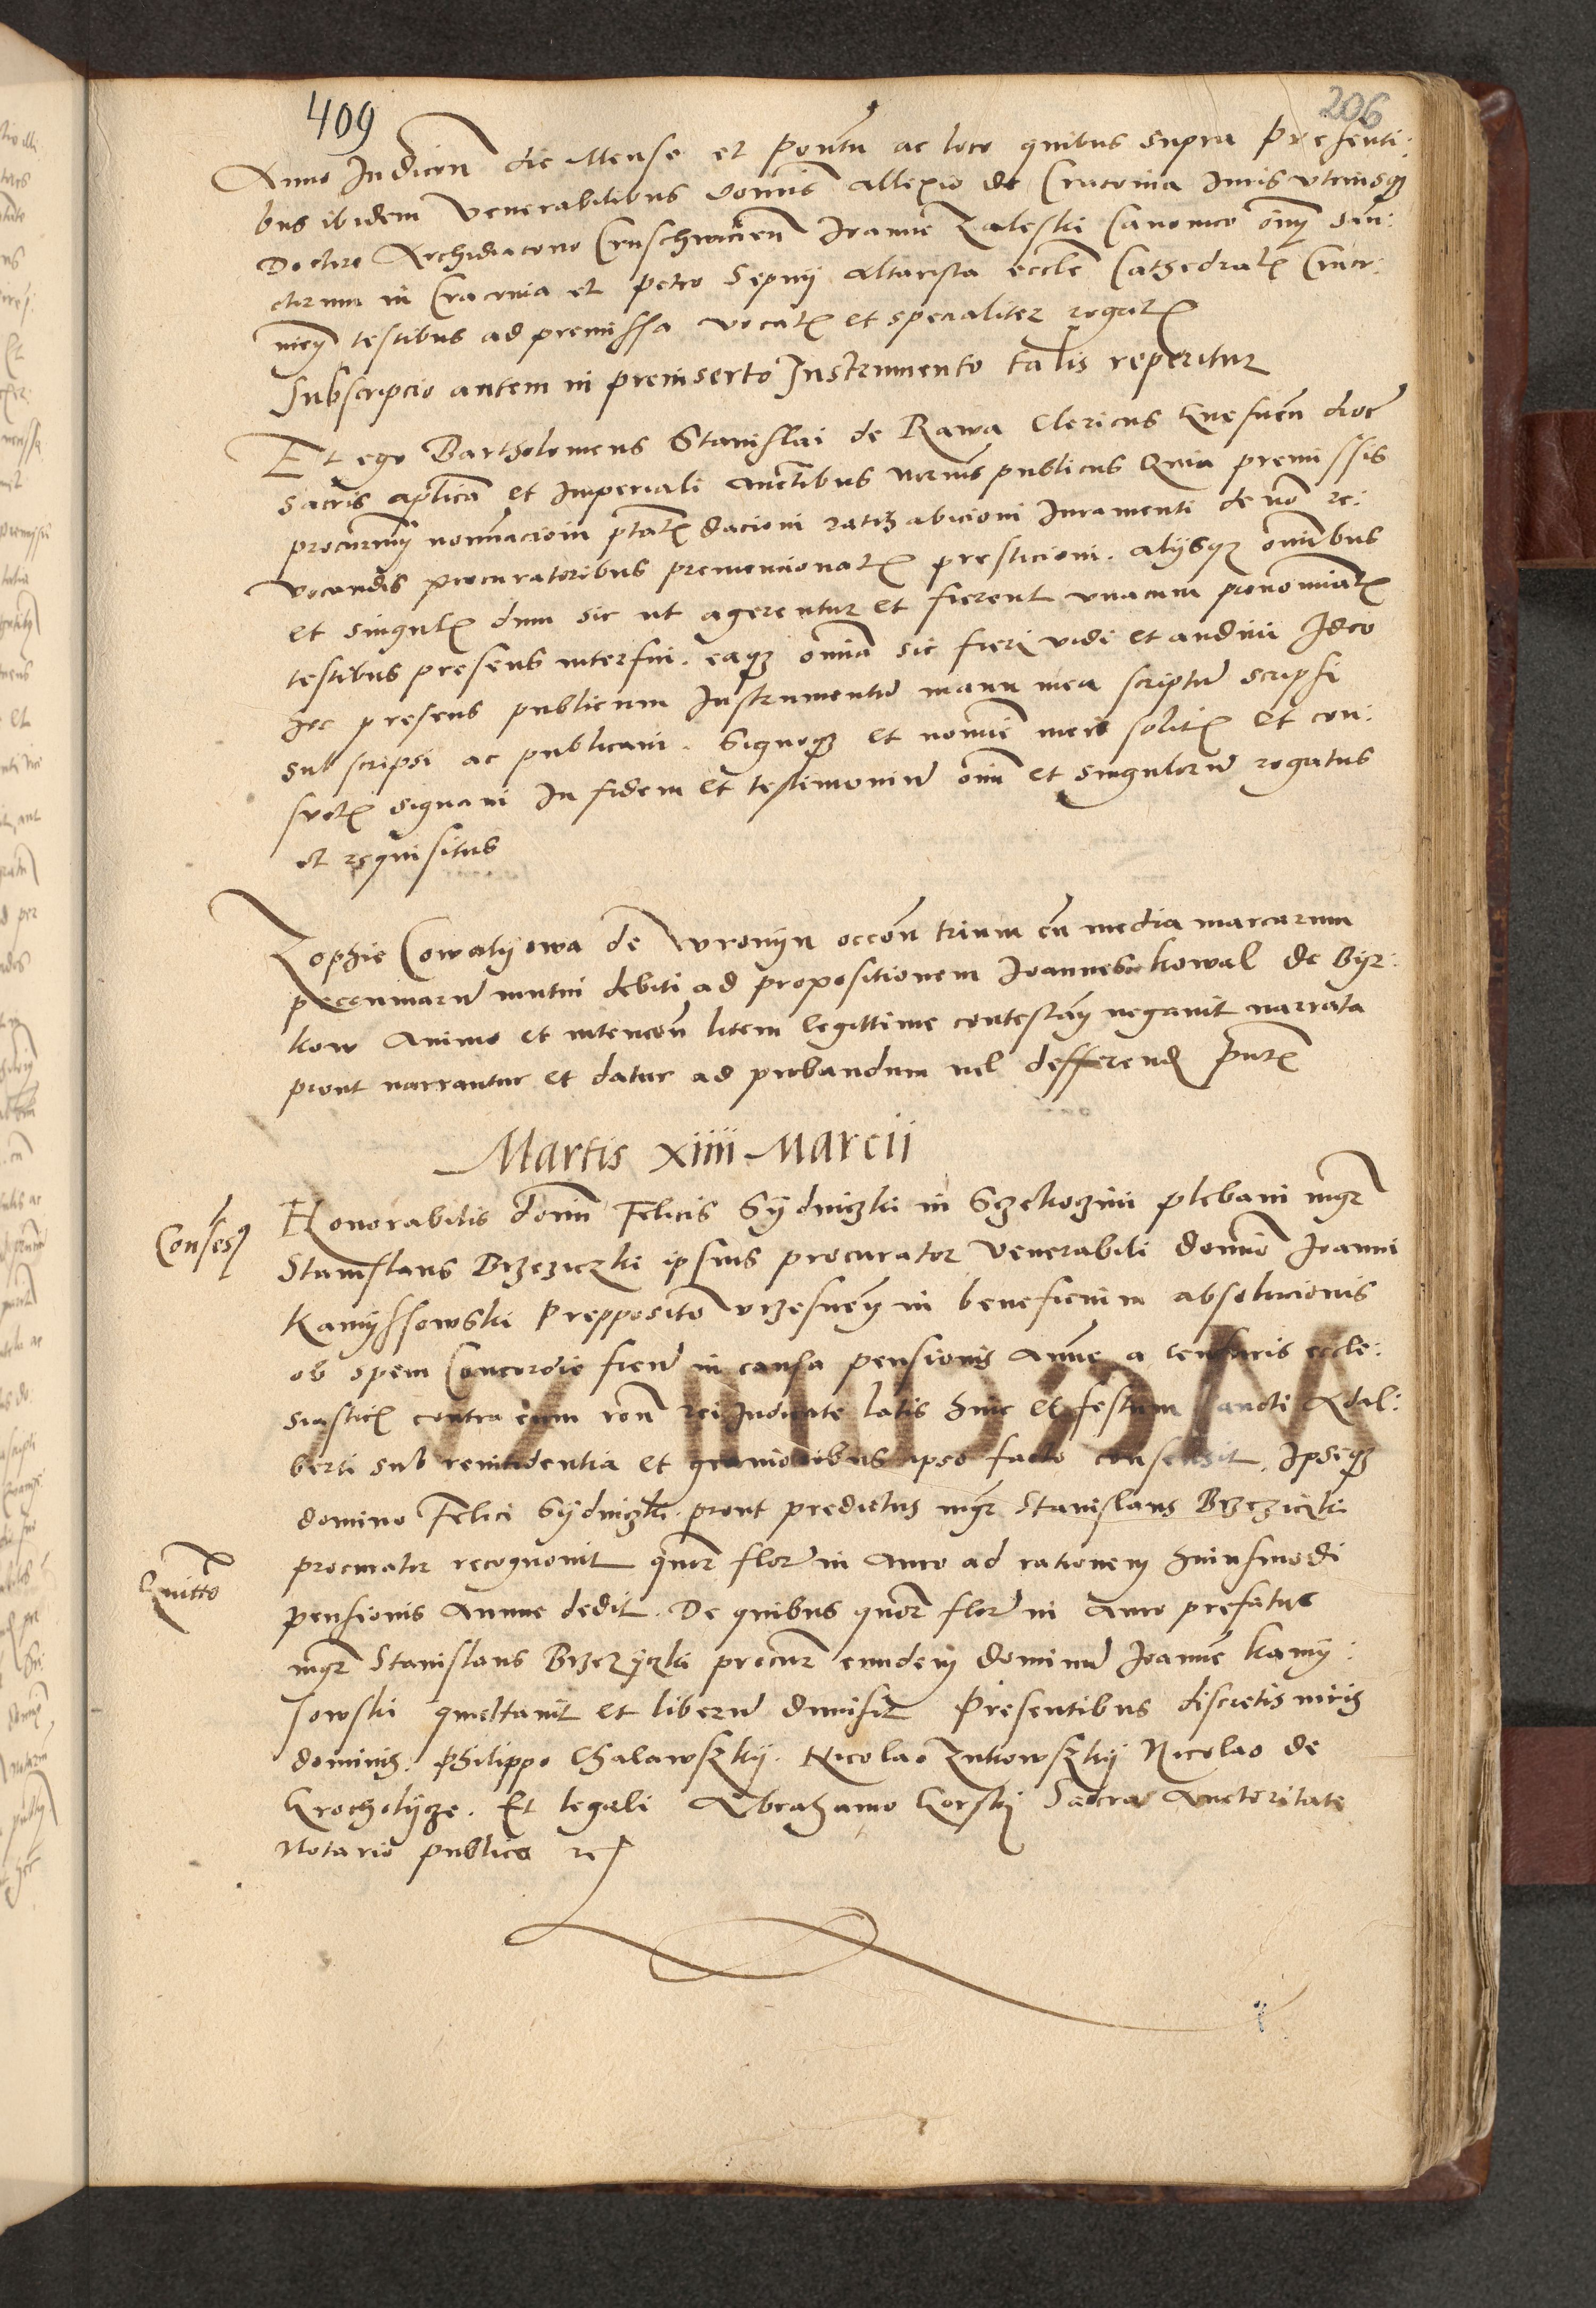 409
206
Anno Indicion die Mense et Pontu ac loco quibus supra Presenti:
bus ibidem Venerabilibus domis Allexio de Cracovia Iuris vtriusq
Doctore Archidiacono Cruschwicien Ioanne Zaleski Canonico oim San:
ctorum in Cracovia et Petro Sepnij Altarista eccle Cathedralis Craco:
vien testibus ad premissa vocatis et specialiter rogatis
Subscripcio autem in preinserto Instrumento talis reperitur
Et ego Bartholomeus Stanislai de Rawa Clericus Gnesnen dioc
Sacris aplica et Imperiali auctbus notarius publicus Quia premissis
procurum nominacioni ptatis dacioni ratihabicioni Iuramenti de no re:
vocandis procuratoribus premencionatis presticioni. alijsq omnibus
et singulis dum sic ut agerentur et fierent vnacum prenominatis
testibus presens interfui. eaq omnia sic fieri vidi et audiui Ideo
hoc presens publicum Instrumentu manu mea scriptu scripsi
subscripsi ac publicaui. Signoq et nomine meis solitis et con:
suetis signaui In fidem et testimoniu oim et singuloru rogatus
et requisitus
Zophie Cowalyowa de Wronyn occon trium cu media marcarum
pecuniaru mutui debiti ad propositionem Ioannes kowal de Byr:
kow Animo et intencon litem legittime contestan negauit narrata
prout narrantur et datur ad probandum vel defferend putis
Martis xiiii Marcii
Consess
Honorabilis domi Felicis Sydniczki in Sczekoczini plebani mgr
Stanislaus Brzeziczki ipsius procurator Venerabili domino Ioanni
Kamyssowski Prepposito vrzesnen in beneficium absolucionis
ob spem Concordie fien in causa pensionis Annue a censuris eccle:
siasticis contra eum ron rei Iudicate latis hinc et festum Sancti Adal:
berti sub reincidentia et grauioribus ipso facto consensit. Ipseq
domino Felici Sydniczki prout predictus mgr Stanislaus Brzeziczki
Quitto
procurator recognouit quor flor in auro ad rationem huiusmodi
pensionis Annue dedit. De quibus quor flor in auro prefatus
mgr Stanislaus Brzezyczki procur eundem dominu Ioanne Kamy:
sowski quiettauit et liberu dimisit Presentibus discretis viris
dominis. Philippo Chalawszky. Nicolao Zukowszky Nicolao de
Grocholycze. Et legali Abrahamo Gorsky Sacra Auctoritate
Notario publico rc